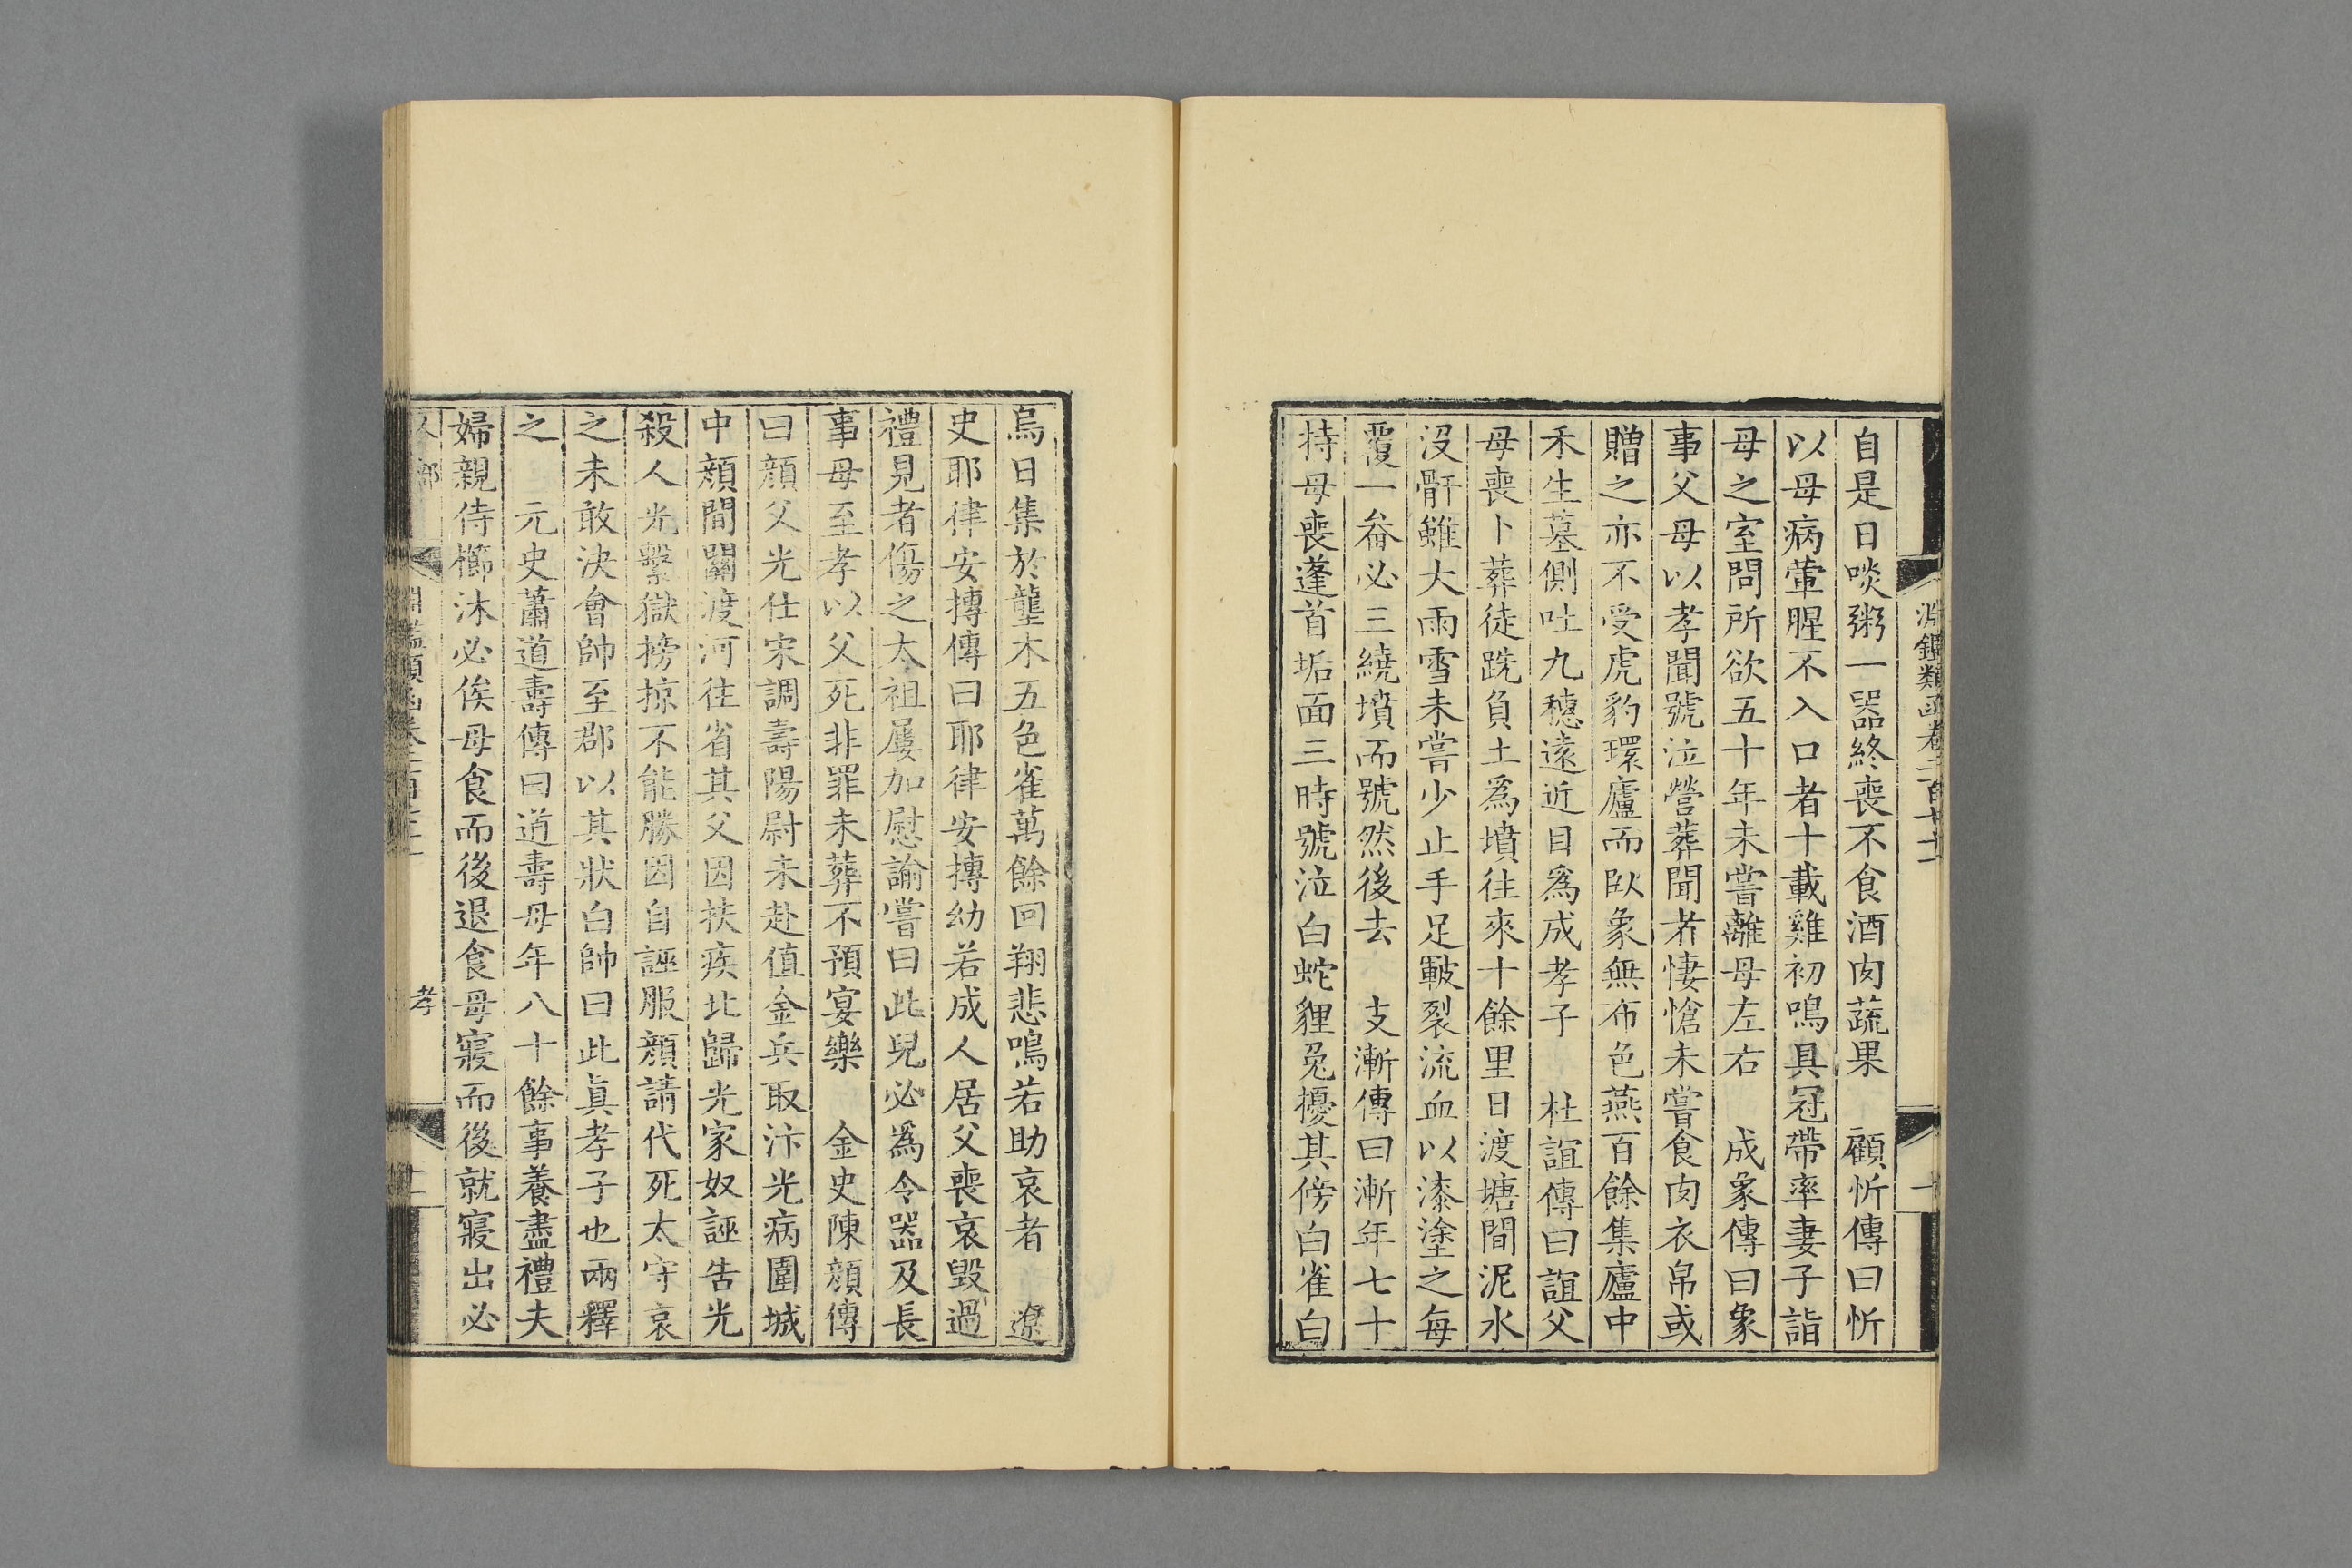 自是日啖粥一器終喪不食酒肉蔬果　顧忻傳曰忻
以母病葷腥不入口者十載雞初鳴具冠帶率妻子詣
母之室問所欲五十年未嘗離母左右　成象傳曰象
事父母以孝聞號泣營葬聞者悽愴未嘗食肉衣帛或
贈之亦不受虎豹環廬而臥象無布色燕百餘集廬中
禾生墓側吐九穗遠近目爲成孝子　杜誼傳曰誼父
母喪卜葬徒跣負土爲墳往來十餘里日渡塘間泥水
沒骭雖大雨雪未嘗少止手足皸裂流血以漆塗之每
覆一畚必三繞墳而號然後去　支漸傳曰漸年七十
持母喪蓬首垢面三時號泣白蛇貍兔擾其傍白雀白
烏日集於壟木五色雀萬餘回翔悲鳴若助哀者　遼
史耶律安摶傳曰耶律安摶幼若成人居父喪哀毀過
禮見者傷之太祖屢加慰諭嘗曰此兒必爲令器及長
事母至孝以父死非罪未葬不預宴樂　金史陳顔傳
曰顔父光仕宋調壽陽尉未赴值金兵取汴光病圍城
中顔間關渡河往省其父因扶疾北歸光家奴誣告光
殺人光繫獄搒掠不能勝因自誣服顔請代死太守哀
之未敢決會帥至郡以其狀白帥曰此眞孝子也兩釋
之　元史蕭道壽傳曰道壽母年八十餘事養盡禮夫
婦親侍櫛沐必俟母食而後退食母寢而後就寢出必
孝